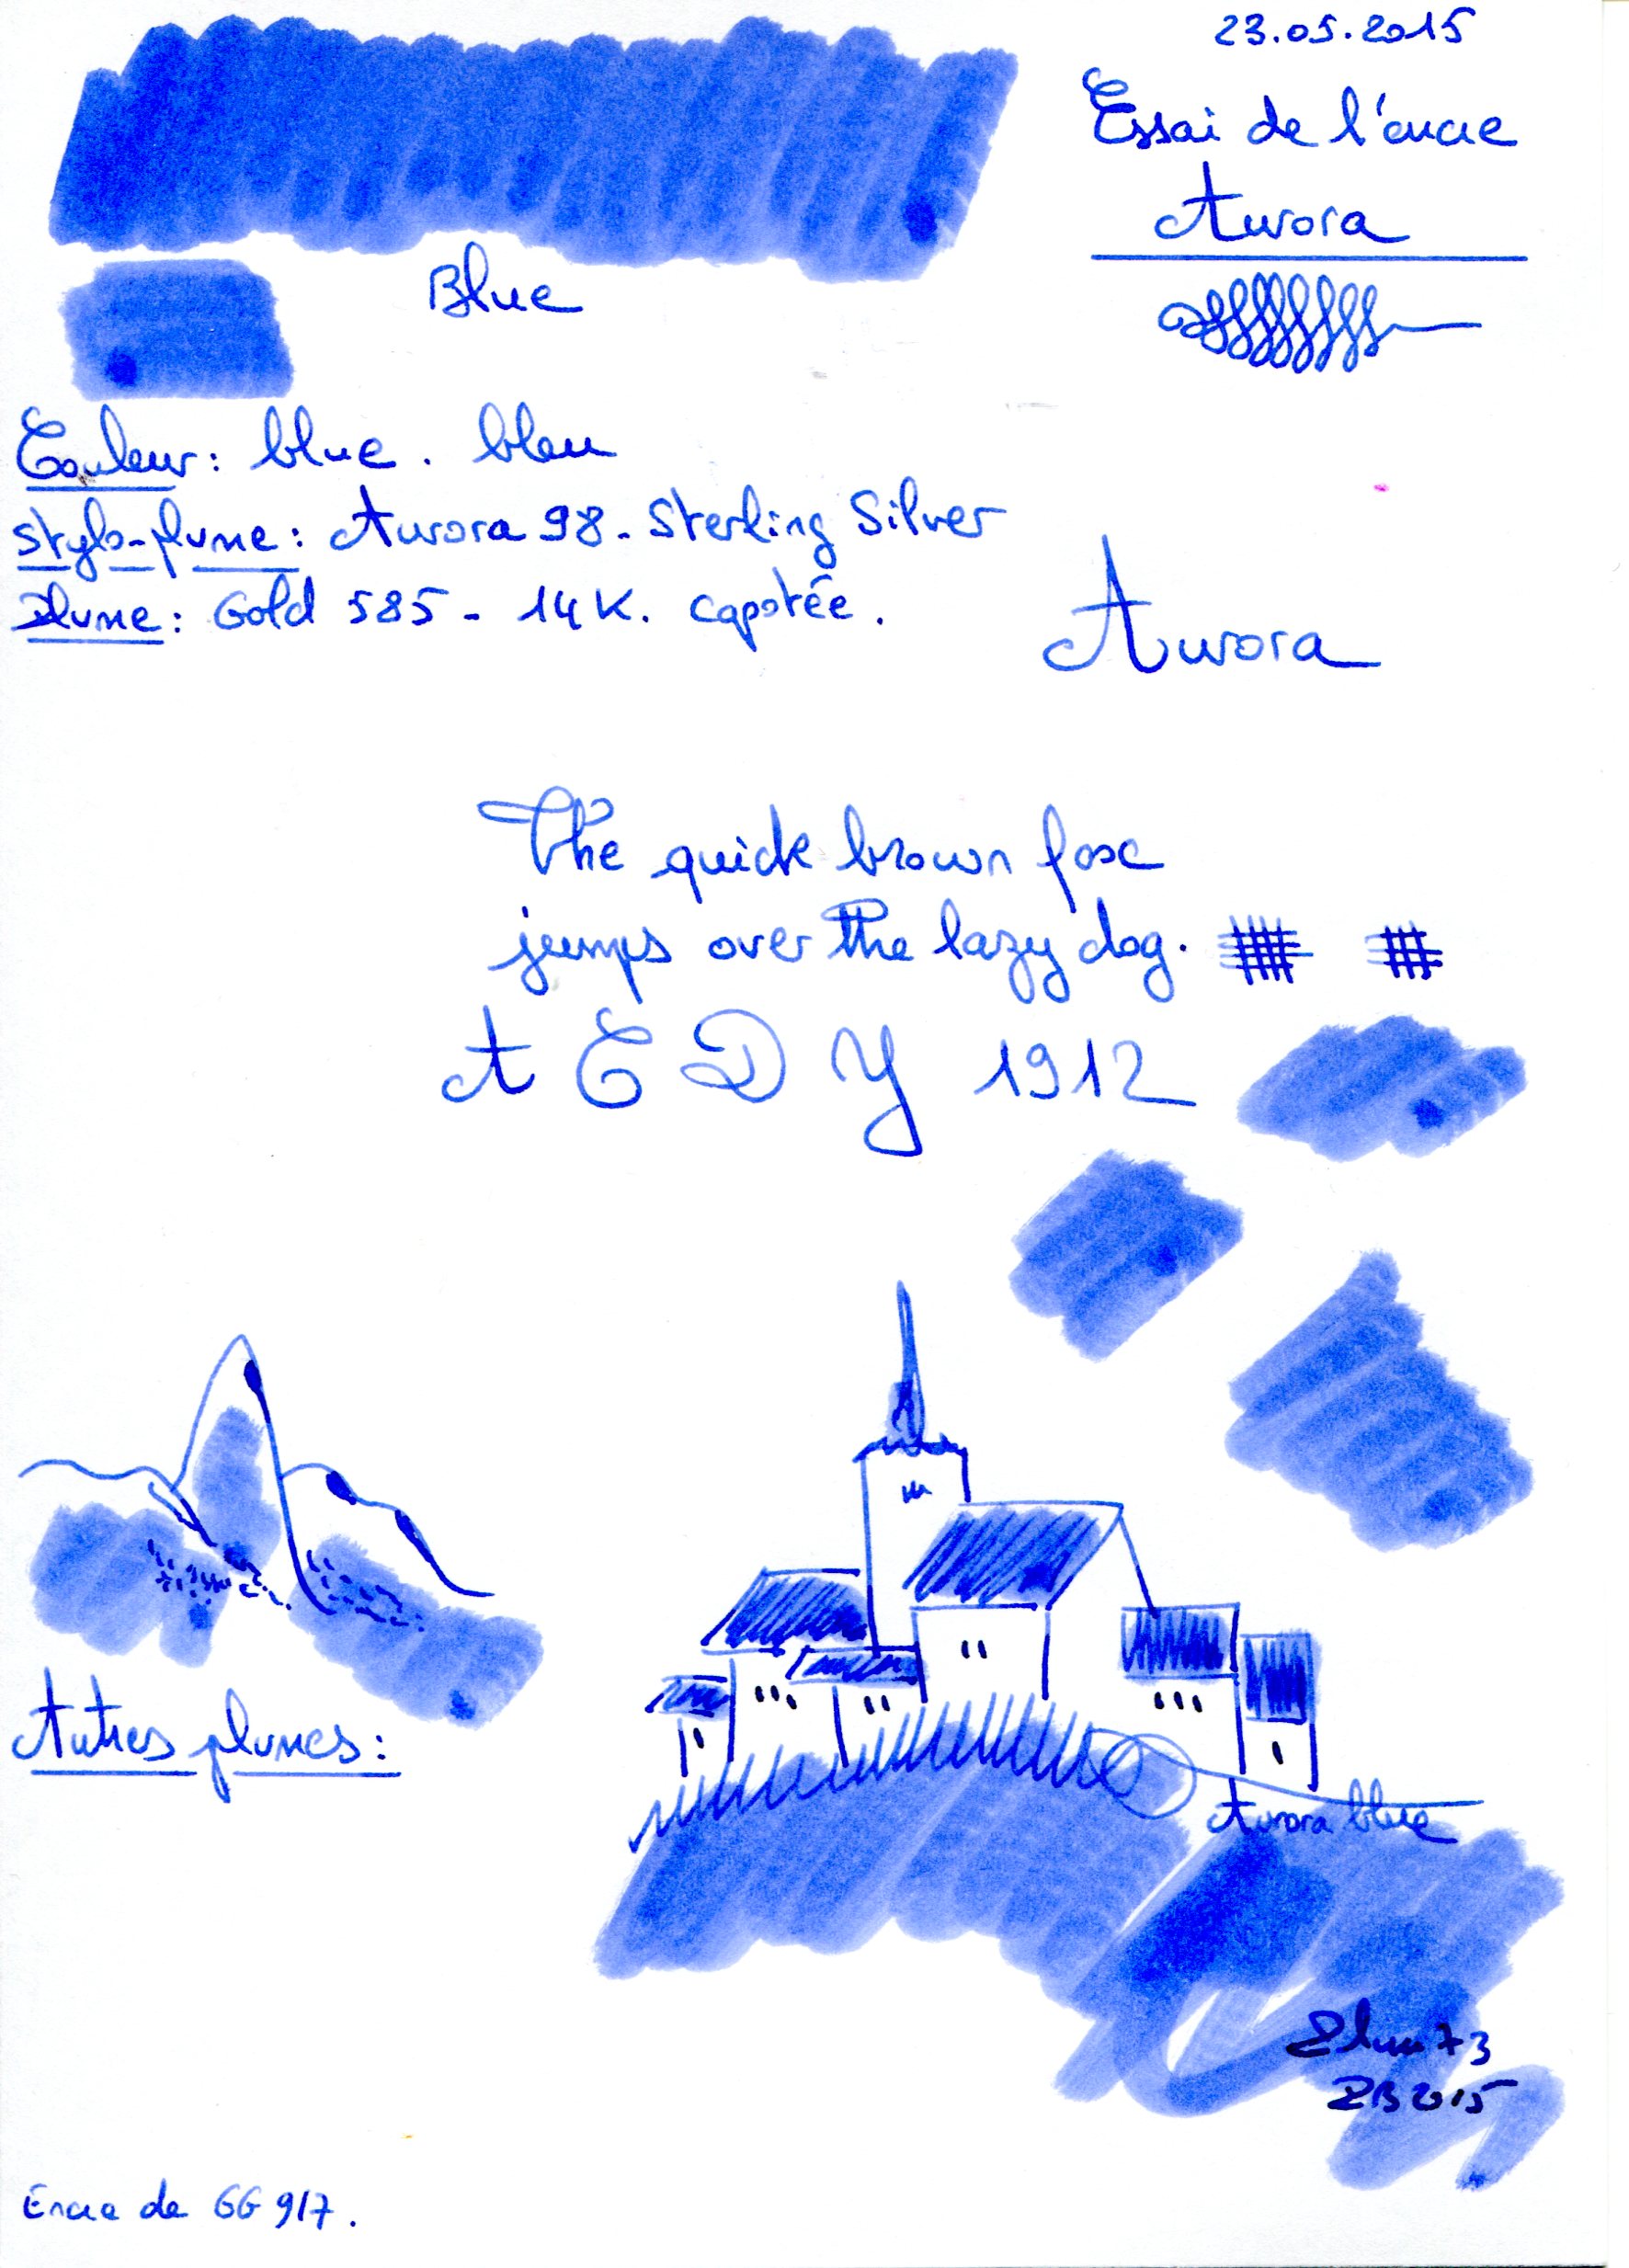 23.05.2015
Essai de l'encre
Aurora
Blue
Couleur: blue. bleu
stylo-plume: Aurora 98- Sterling Silver
Plume: Gold 585 - 14K. capotée.
Aurora
The quick brown fox
jumps over the lazy dog.
A E D Y 1912
Autres plumes:
Aurora blue
73
2015
Encre de GG 917.